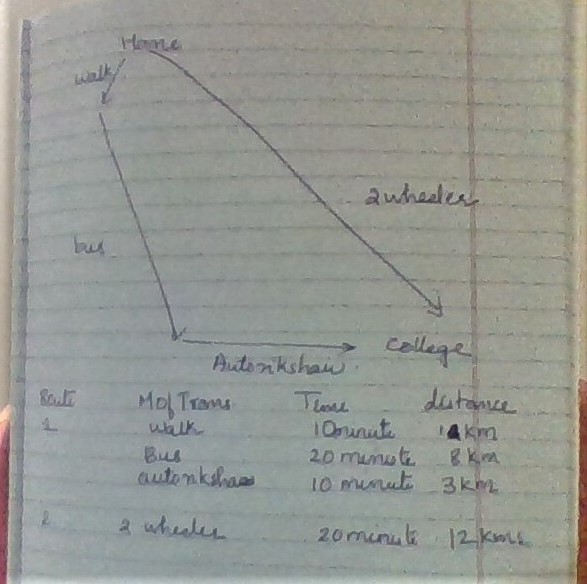 Home
walk
2 wheeler
bus
College
Autorikshaw
Route M of Trans Time distance
1 walk 10minute 1 km
Bus 20 minute 8 km
autoriksha 10 minute 3 km
2 2 wheeler 20minute 12 kms